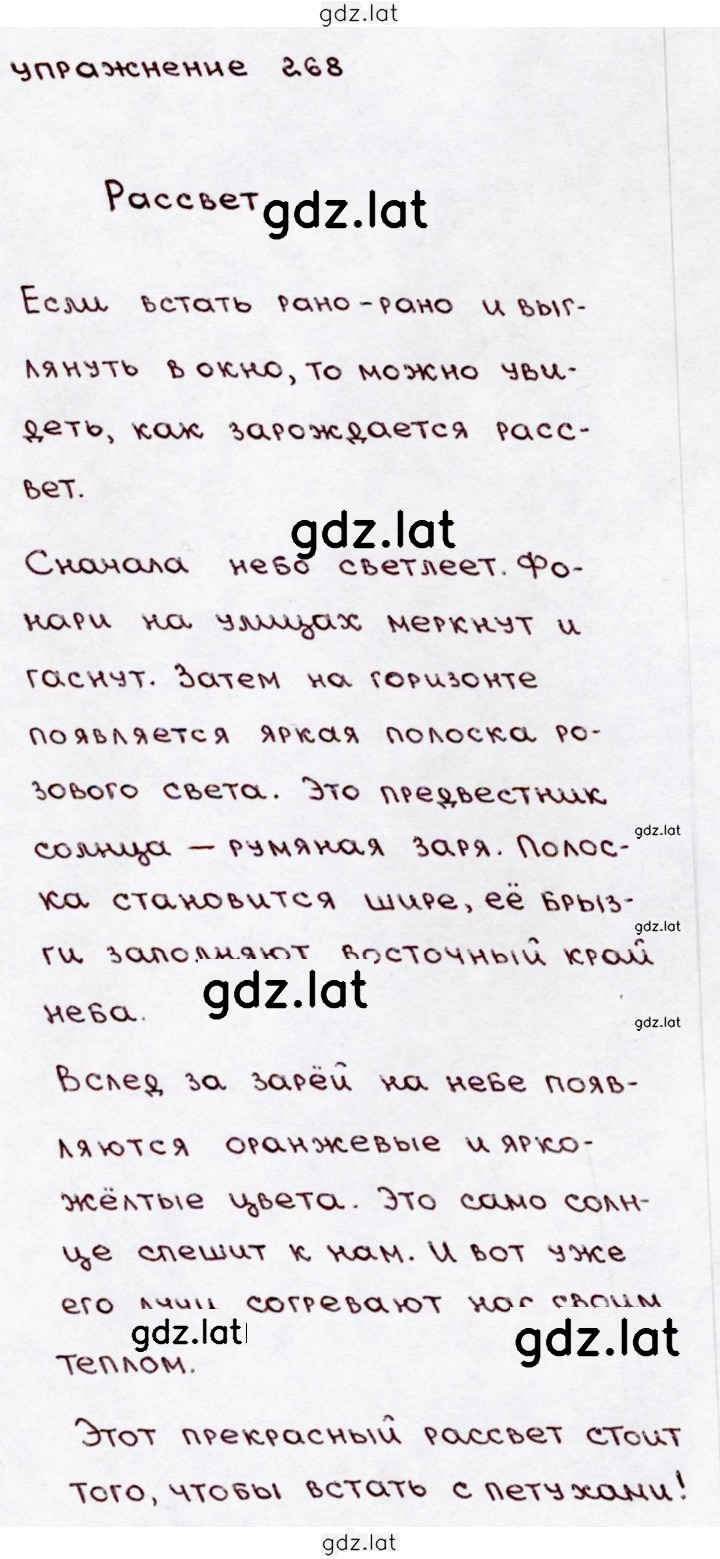 gdz.lat
упражнение 268
Рассвет
gdz.lat
Если встать рано-рано и выг-
лянуть в окно, то можно уви-
деть, как зарождается расс-
вет.
gdz.lat
Сначала небо светлеет. Фо-
нари на улицах меркнут и
гаснут. Затем на горизонте
появляется яркая полоска ро-
зового света. Это предвестник
gdz.lat
солнца – румяная заря. Полос-
ка становится шире, её брыз-
gdz.lat
ги заполняют восточный край
gdz.lat
неба.
gdz.lat
Вслед за зарёй на небе появ-
ляются оранжевые и ярко-
жёлтые цвета. Это само солн-
це спешит к нам. И вот уже
его лучи согревают нас своим
gdz.lat
gdz.lat
теплом.
Этот прекрасный рассвет стоит
того, чтобы встать с петухами!
gdz.lat